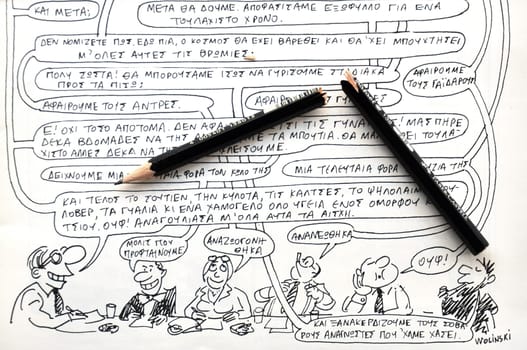 ΚΑΙ ΜΕΤΑ;
ΜΕΤΑ ΘΑ ΔΟΥΜΕ. ΑΠΟΦΑΣΙΣΑΜΕ ΕΞΩΦΥΛΛΟ ΓΙΑ ΕΝΑ
ΤΟΥΛΑΧΙΣΤΟ ΧΡΟΝΟ.
ΔΕΝ ΝΟΜΙΖΕΤΕ ΠΩΣ, ΕΔΩ ΠΙΑ, Ο ΚΟΣΜΟΣ ΘΑ ΕΧΕΙ ΒΑΡΕΘΕΙ ΚΑΙ ΘΑ 'ΧΕΙ ΜΠΟΥΧΤΗΣΕΙ
Μ' ΟΛΕΣ ΑΥΤΕΣ ΤΙΣ ΒΡΩΜΙΕΣ;
ΠΟΛΥ ΣΩΣΤΑ! ΘΑ ΜΠΟΡΟΥΣΑΜΕ ΙΣΩΣ ΝΑ ΓΥΡΙΖΑΜΕ
ΠΡΟΣ ΤΑ ΠΙΣΩ:
ΑΦΑΙΡΟΥΜΕ
ΤΟΥΣ ΓΑΪΔΑΡΟΥΣ
ΑΦΑΙΡΟΥΜΕ ΤΟΥΣ ΑΝΤΡΕΣ.
Ε! ΟΧΙ ΤΟΣΟ ΑΠΟΤΟΜΑ. ΔΕΝ ΤΙΣ ΜΑΣ ΠΗΡΕ
ΔΕΚΑ ΒΔΟΜΑΔΕΣ ΝΑ ΤΑ ΜΠΟΥΤΙΑ. ΘΑ
ΧΙΣΤΟ ΑΛΛΕΣ ΔΕΚΑ ΝΑ
ΔΕΙΧΝΟΥΜΕ ΜΙΑ ΦΟΡΑ ΤΟΝ ΚΩΛΟ ΤΗΣ
ΜΙΑ ΤΕΛΕΥΤΑΙΑ ΦΟΡΑ ΤΗΣ
ΚΑΙ ΤΕΛΟΣ ΤΟ ΣΟΥΤΙΕΝ, ΤΗΝ ΚΥΛΟΤΑ, ΤΙΣ ΚΑΛΤΣΕΣ, ΤΟ
ΛΟΒΕΡ, ΤΑ ΓΥΑΛΙΑ ΚΙ ΕΝΑ ΧΑΜΟΓΕΛΟ ΟΛΟ ΥΓΕΙΑ ΕΝΟΣ ΟΜΟΡΦΟΥ
ΤΣΙΟΥ. ΟΥΦ! ΑΝΑΓΟΥΛΙΑΣΑ Μ' ΟΛΑ ΑΥΤΑ ΤΑ ΑΙΣΧΗ.
ΜΟΛΙΣ ΠΟΥ
ΠΡΟΦΤΑΙΝΟΥΜΕ
ΑΝΑΖΩΟΓΟΝΗ
ΘΗΚΑ
ΟΥΦ!
ΚΑΙ ΞΑΝΑΚΕΡΔΙΖΟΥΜΕ ΤΟΥΣ ΣΟΒΑ
ΡΟΥΣ ΑΝΑΓΝΩΣΤΕΣ ΠΟΥ 'ΧΑΜΕ ΧΑΣΕΙ.
WOLINSKI